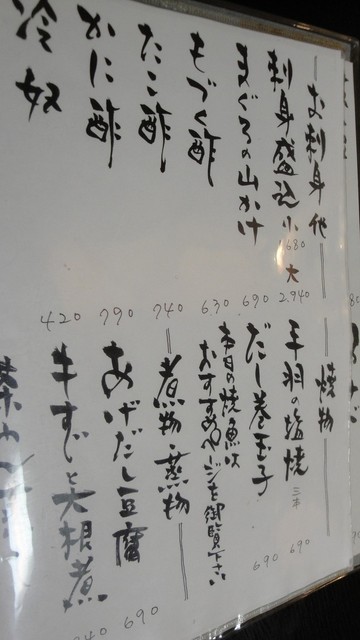 お刺身代
刺身盛込 小 1680 大 2,940
まぐろの山かけ 690
もづく酢 630
たこ酢 740
かに酢 790
冷奴 420
焼物
手羽の塩焼 三本 690
だし巻玉子 690
本日の焼魚は
おすすめページを御覧下さい
煮物・蒸物
あげだし豆腐 690
牛すじと大根煮